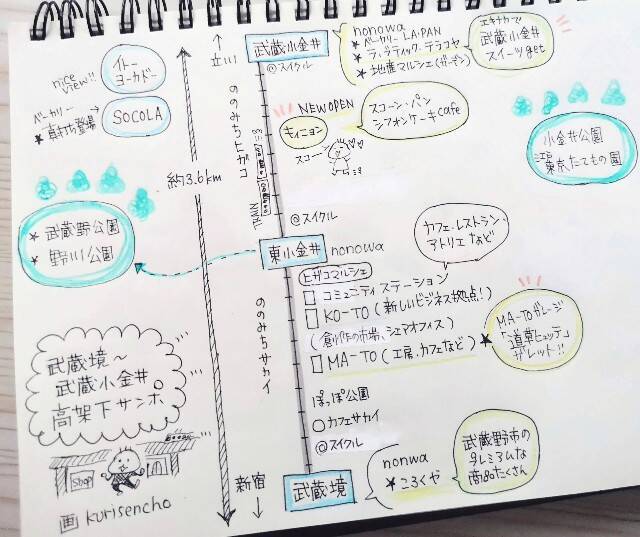 nice view!!
イトーヨーカドー
ベーカリー
SOCOLA
↑
立川
武蔵小金井
@スイクル
nonowa
★ベーカリー LA:PAN
★地産マルシェ(ガーデン)
エキナカで
武蔵小金井
スイーツget
ののみちヒガコ
NEW OPEN
キィニョン
スコーン・パン
シフォンケーキcafe
スコーン
TRAIN
約3.6km
小金井公園
江戸東京たてもの園
★武蔵野公園
★野川公園
@スイクル
東小金井
nonowa
カフェ・レストラン・
アトリエなど
ヒガコマルシェ
コミュニティステーション
KO-TO(新しいビジネス拠点!)
(創作の市場、シェアオフィス)
MA-TO(工房、カフェなど)
★MA-TOガレージ
「道草ヒュッテ」
ガレット!!
ののみちサカイ
ぽっぽ公園
○カフェサカイ
@スイクル
武蔵境〜
武蔵小金井。
高架下サンポ。
Shop
画 kurisencho
新宿
↓
武蔵境
nonwa
★ころくや
武蔵野市の
プレミアムな
商品たくさん